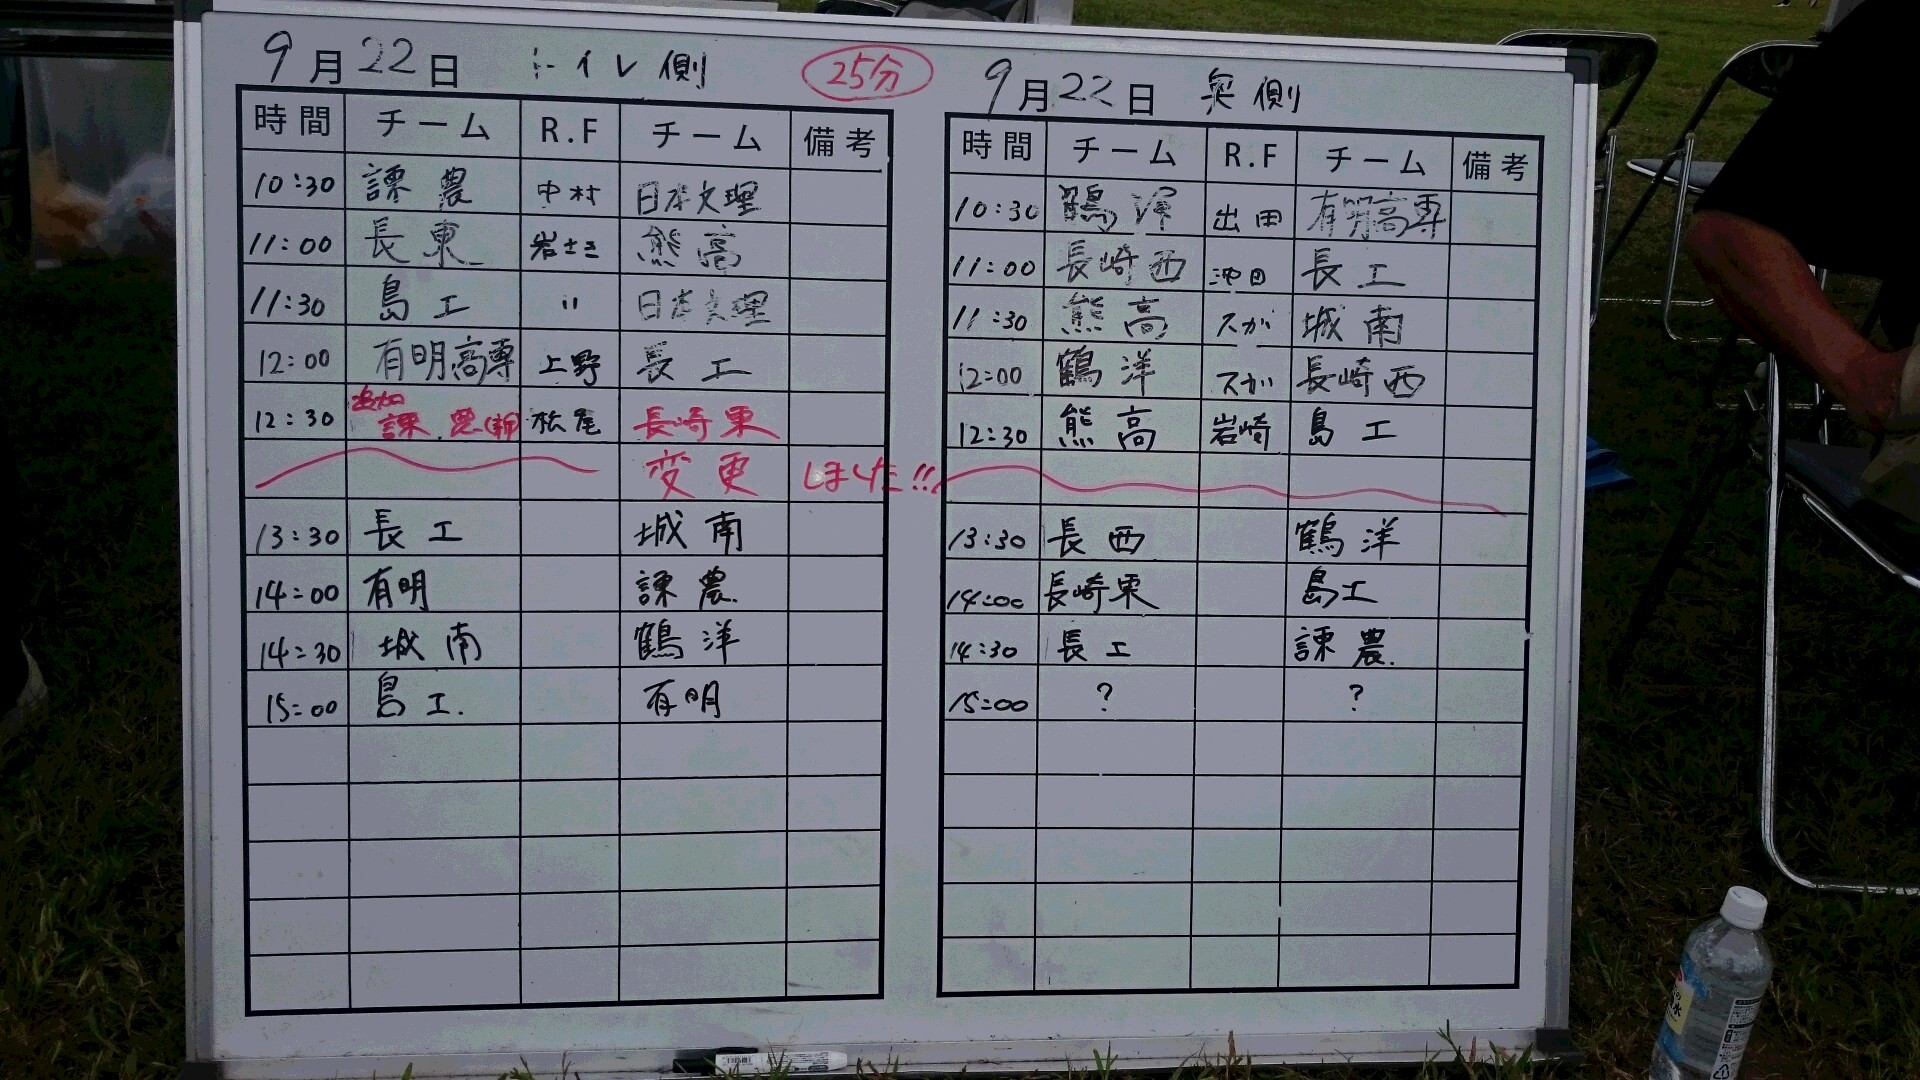 9月22日 トイレ側
25分
時間 チーム R.F チーム 備考
10:30 諫農 中村 日本文理
11:00 長東 岩さき 熊高
11:30 島工 〃 日本文理
12:00 有明高専 上野 長工
追加
12:30 諫農 松尾 長崎東
変更 しました!!
13:30 長工 城南
14:00 有明 諫農
14:30 城南 鶴洋
15:00 島工 有明
9月22日 奥側
時間 チーム R.F チーム 備考
10:30 鶴洋 出田 有明高専
11:00 長崎西 池田 長工
11:30 熊高 スガ 城南
12:00 鶴洋 スガ 長崎西
12:30 熊高 岩崎 島工
13:30 長西 鶴洋
14:00 長崎東 島工
14:30 長工 諫農
15:00 ? ?